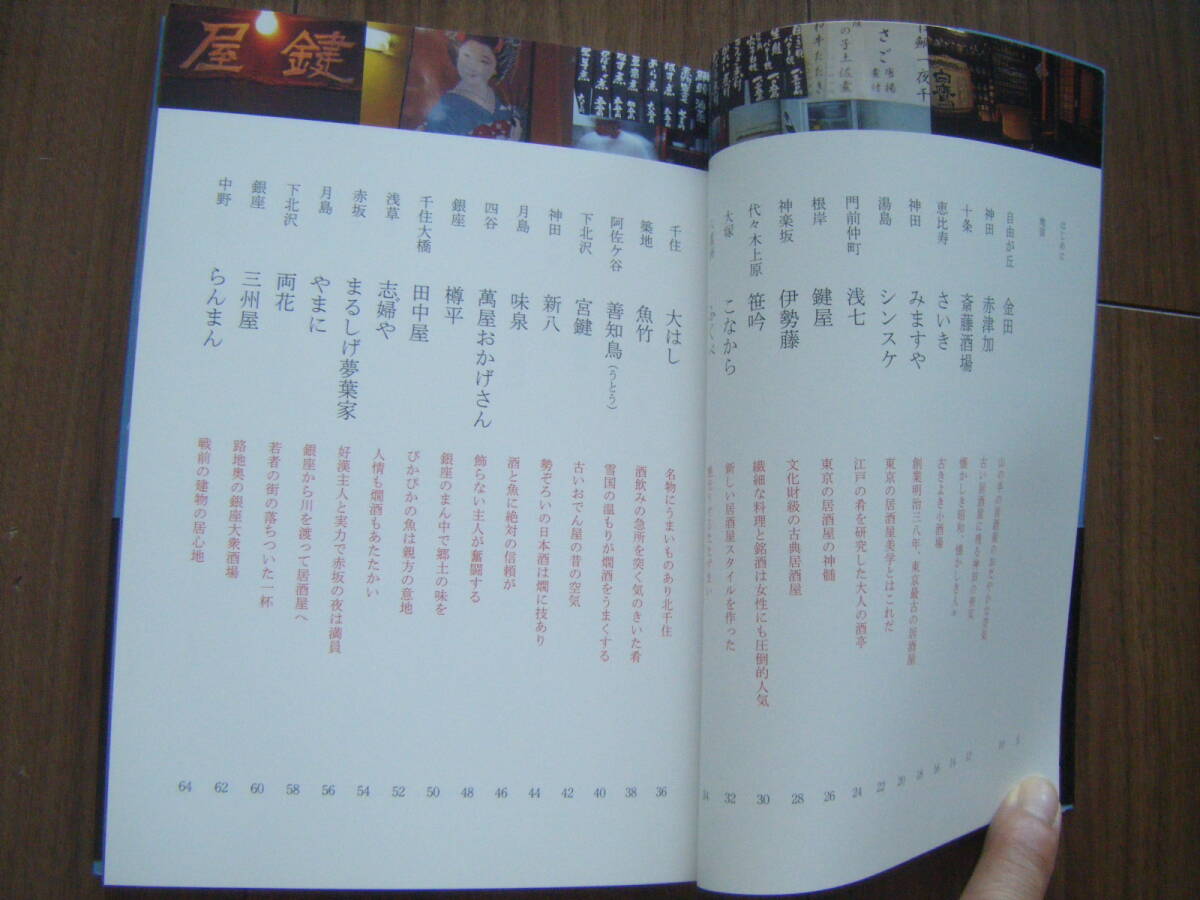 鍵屋
はじめに 5
地図 10
自由が丘 金田 山の手の居酒屋のおだやかな空気 12
神田 赤津加 古い居酒屋に残る神田の粋 14
十条 斎藤酒場 懐かしき昭和、懐かしき人々 16
恵比寿 さいき 古きよき小酒場 18
神田 みますや 創業明治三八年、東京最古の居酒屋 20
湯島 シンスケ 東京の居酒屋美学とはこれだ 22
門前仲町 浅七 江戸の肴を研究した大人の酒亭 24
根岸 鍵屋 東京の居酒屋の神髄 26
神楽坂 伊勢藤 文化財級の古典居酒屋 28
代々木上原 笹吟 繊細な料理と銘酒は女性にも圧倒的人気 30
大塚 こなから 新しい居酒屋スタイルを作った 32
34
千住 大はし 名物にうまいものあり北千住 36
築地 魚竹 酒飲みの急所を突く気のきいた肴 38
阿佐ケ谷 善知鳥(うとう) 雪国の温もりが燗酒をうまくする 40
下北沢 宮鍵 古いおでん屋の昔の空気 42
神田 新八 勢ぞろいの日本酒は燗に技あり 44
月島 味泉 酒と魚に絶対の信頼が 46
四谷 萬屋おかげさん 飾らない主人が奮闘する 48
銀座 樽平 銀座のまん中で郷土の味を 50
千住大橋 田中屋 ぴかぴかの魚は親方の意地 52
浅草 志婦や 人情も燗酒もあたたかい 54
赤坂 まるしげ夢葉家 好漢主人と実力で赤坂の夜は満員 56
月島 やまに 銀座から川を渡って居酒屋へ 58
下北沢 両花 若者の街の落ちついた一杯 60
銀座 三州屋 路地奥の銀座大衆酒場 62
中野 らんまん 戦前の建物の居心地 64